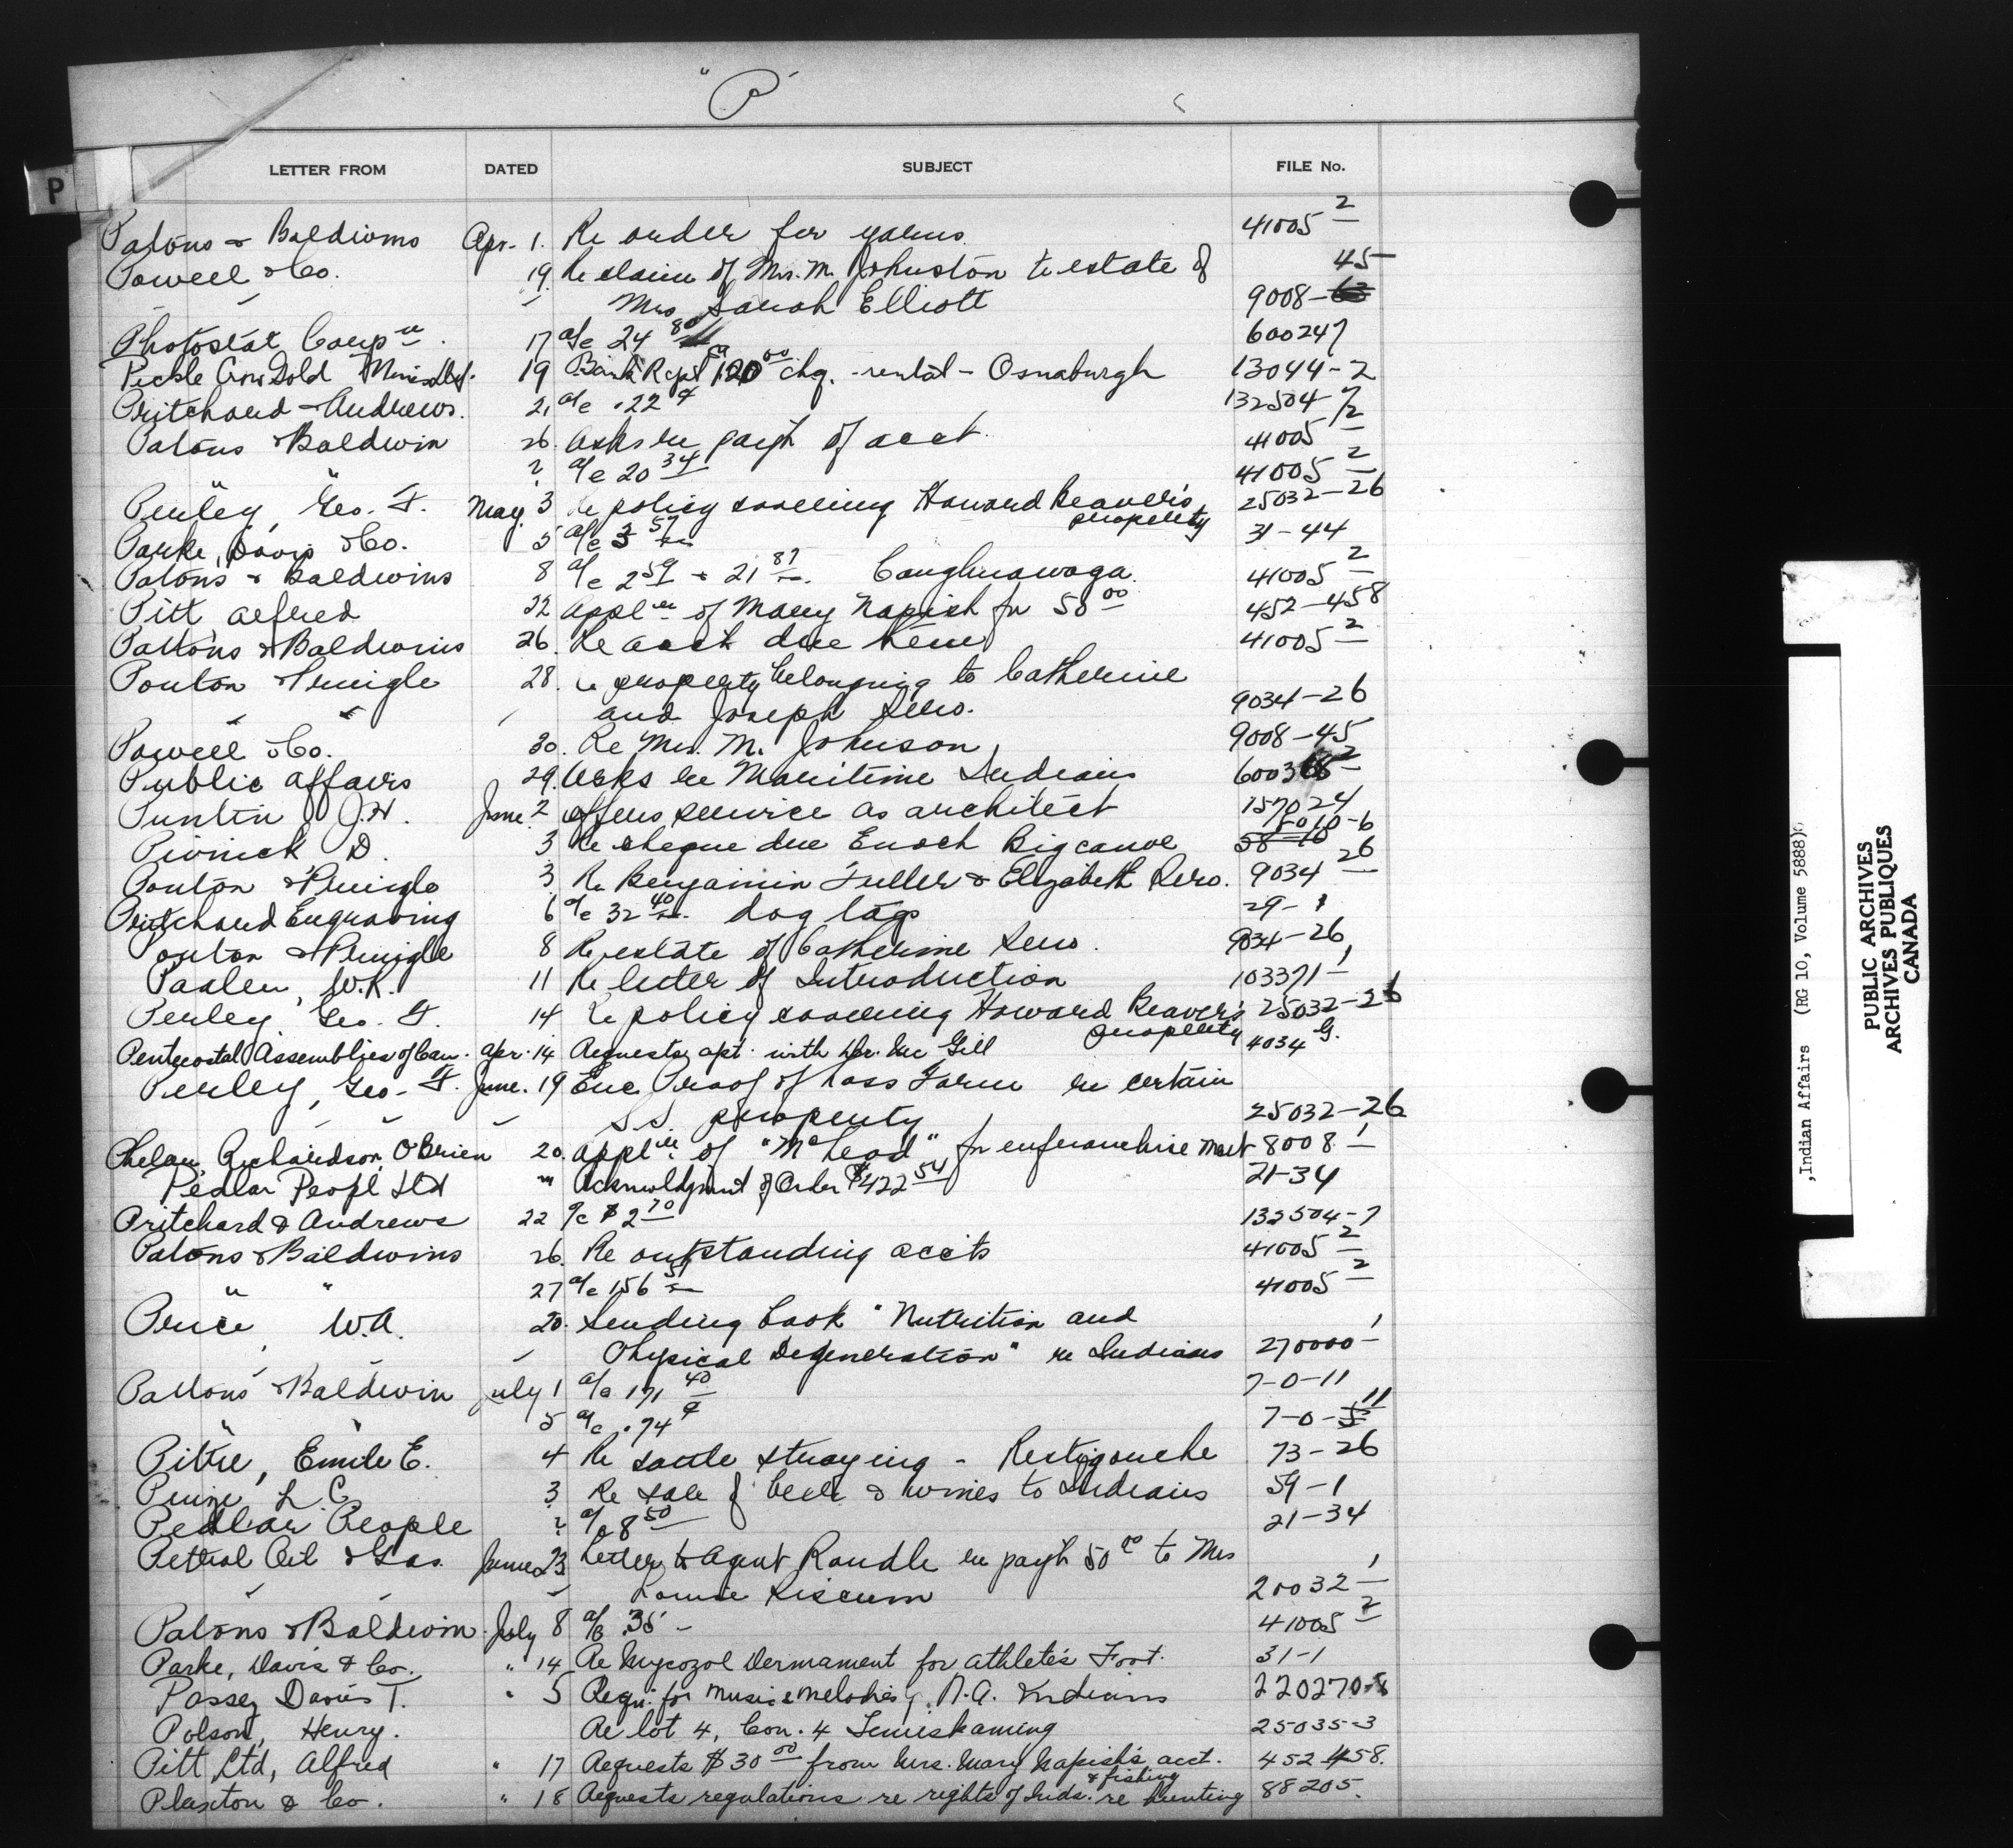 "P"
P
LETTER FROM DATED SUBJECT FILE No.
Patons & Baldwins Apr. 1. Re order for yarns. 41005 2
Powell & Co. 19. Re claim of Mrs. M. Johnston to estate of 45
" " Mrs Sarah Elliott 9008-63
Photostat Corpn. 17 a/c 24 80 600247
Pickle Crow Gold Mines Ltd. 19 Bank Rcpt 120 00 chq. - rental - Osnaburgh 13044-2
Pritchard & Andrews. 21 a/c .22 ¢ 132504-7
Patons & Baldwin 26. Asks re pay't of acct. 41005 2
" " ? a/c 20 34 41005 2
Perley, Geo. F. May 3 Re policy covering Howard Beaver's property 25032-26
Parke, Davis & Co. 5 a/c 3 57 31-44
Patons & Baldwins 8 a/c 2 59 & 21 87. Caughnawaga. 41005 2
Pitt Alfred 22 Appln of Mary Napish for 50 00 452-458
Pattons & Baldwins 26. Re acct due them 41005 2
Ponton & Pringle 28. Re property belonging to Catherine
" " and Joseph Sero. 9034-26
Powell & Co. 30. Re Mrs. M. Johnson 9008-45
Public Affairs 29. Asks re Maritime Indians 600368 2
Puntin J.H. June 2 Offers service as architect 157024
Pivnick D. 3 Re cheque due Enoch Bigcanoe 58-10 5010-6
Ponton & Pringle 3 Re Benjamin Fuller & Elizabeth Sero. 9034 26
Pritchard Engraving 6 a/c 32 40. dog tags 29-1
Ponton & Pringle 8 Re estate of Catherine Sero. 9034-26
W.R. 11 Re letter of Introduction 103371-1
Perley Geo. F. 14 Re policy covering Howard Beaver's property 25032-26
Pentecostal Assemblies of Can. Apr. 14 Requests apt. with Dr. McGill 4034 G.
Perley, Geo. F. June. 19 Enc Proof of Loss Form re certain
" " S.S. property 25032-26
Phelan, Richardson, O'Brien 20. Appln. of "McLeod" for enfranchisement 8008-1
Pedlar Peopl Ltd " Acknowldgment of Order $422 54 21-34
Pritchard & Andrews 22 a/c $2 70 132504-7
Patons & Baldwins 26. Re outstanding accts 41005 2
" " 27 a/c 156 51 41005 2
Price, W.A. 20. Sending book "Nutrition and
" " Physical Degeneration" re Indians 270000-1
Pattons & Baldwin July 1 a/c 171 40 7-0-11
" " 5 a/c .74 ¢ 7-0-5 11
Pitre, Emile E. 4 Re cattle straying - Restigouche 73-26
L. C. 3 Re sale of beer & wines to Indians 59-1
Pedlar People ? a/c 8 50 21-34
Petrol Oil & Gas. June 23 Letter to Agent Randle re pay't 50 00 to Mrs
" " Louise 20032-1
Patons & Baldwin July 8 a/c .35 - 41005 2
Parke, Davis & Co. " 14 Re Mycozol Dermament for athlete's Foot. 31-1
Passey Davis T. " 5 Requ. for music & melodies of N.A. Indians 220270-8
Polson, Henry. Re lot 4, Con. 4 Temiskaming 25035-3
Pitt Ltd, Alfred " 17 Requests $30 00 from Mrs. Mary Napish's acct. 452-458.
Plaxton & Co. " 18 Requests regulations re rights of Inds. re hunting & fishing 88205.
,Indian Affairs (RG 10, Volume 5888)
PUBLIC ARCHIVES
ARCHIVES PUBLIQUES
CANADA